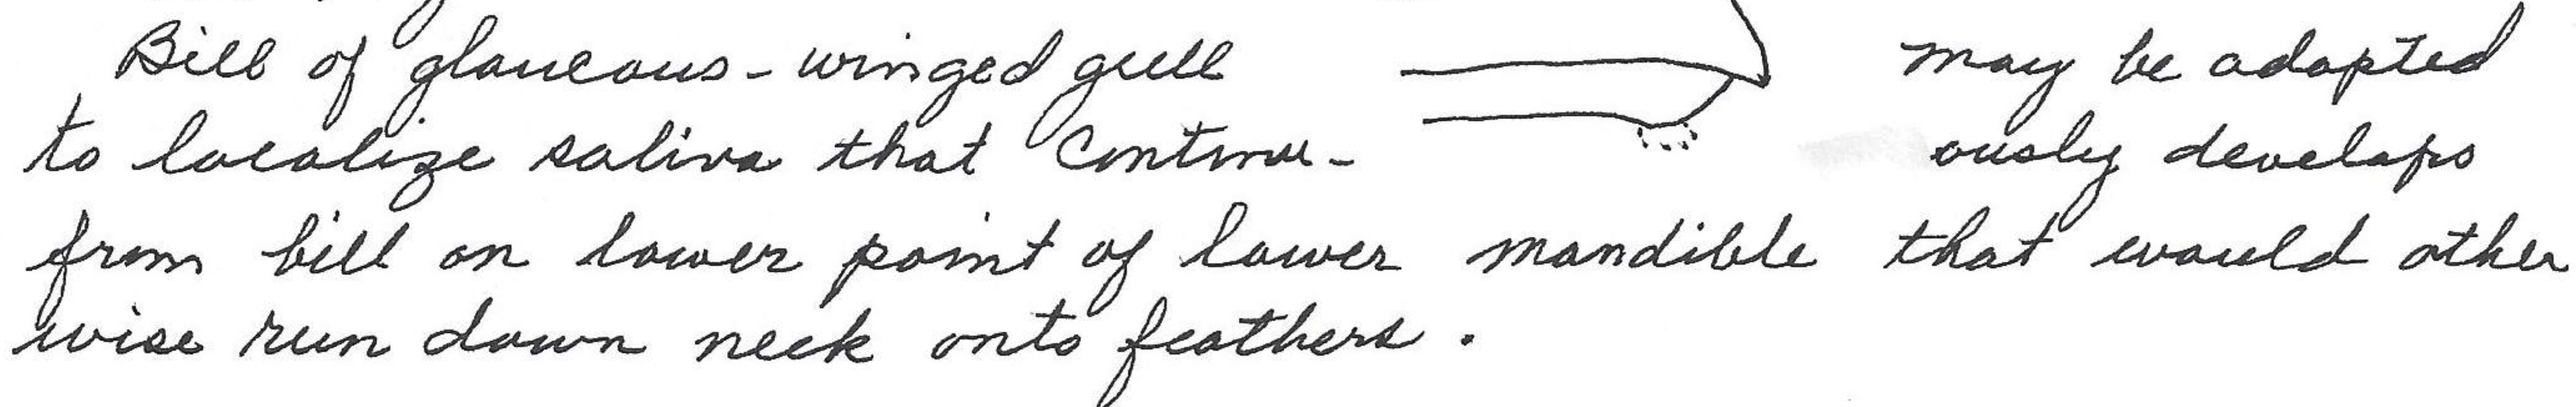 Bill of glaucous-winged gull may be adapted
to localize saliva that continu- ously develops
from bill on lower point of lower mandible that would other
wise run down neck onto feathers.